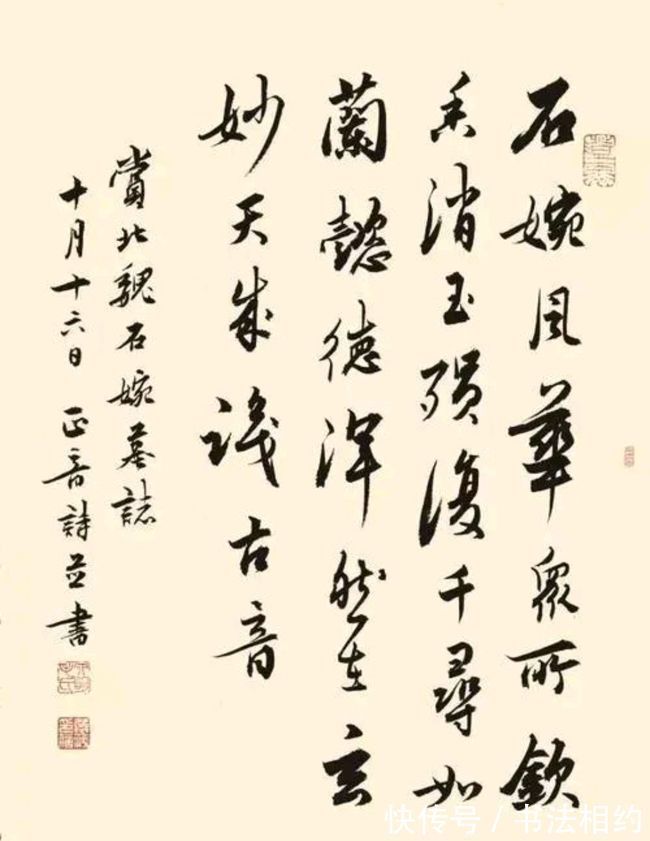 石婉風華眾所欽
香消玉殞復千尋如
蘭懿德渾然在玄
妙天成識古音
賞北魏石婉墓誌
十月十六日 正音詩並書
快传号/书法相约